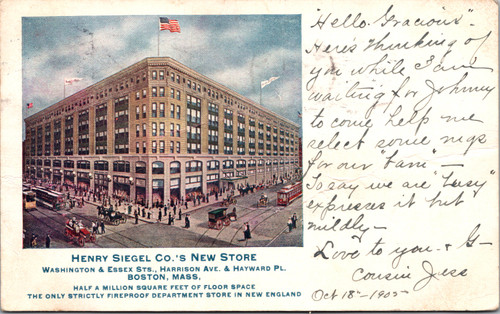 "Hello Gracious".
Here's thinking of
you while I am
waiting for Johnny
to come help me
select some rugs
for our "farm" —
To say we are "busy"
expresses it but
mildly —
Love to you - & G -
Cousin Jess
Oct 18 - 1905
HENRY SIEGEL CO.'S NEW STORE
WASHINGTON & ESSEX STS., HARRISON AVE. & HAYWARD PL.
BOSTON, MASS.
HALF A MILLION SQUARE FEET OF FLOOR SPACE
THE ONLY STRICTLY FIREPROOF DEPARTMENT STORE IN NEW ENGLAND